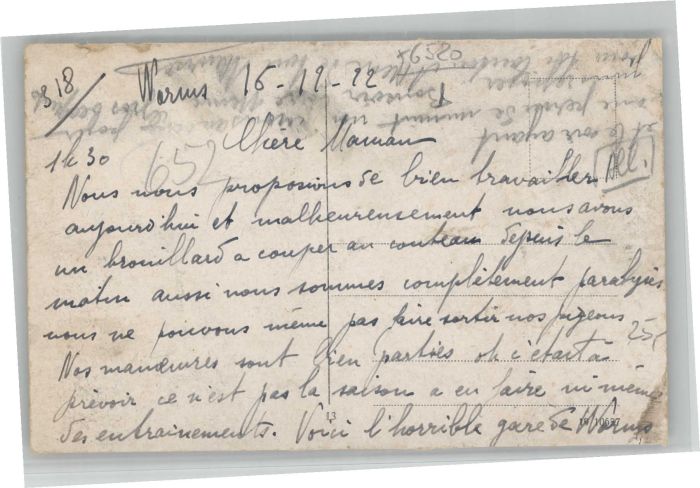 318/
Worms 16-12-22
x9520
1h30
Chère Maman
Nous nous proposions de bien travailler
All.
aujourd'hui et malheureusement nous avons
un brouillard a couper au couteau depuis le
matin aussi nous sommes complètement paralysés
nous ne pouvons même pas faire sortir nos pigeons
25c
Nos manœuvres sont bien parties oh c'était a
prévoir ce n'est pas la saison a en faire ni même
des entrainements. Voici l'horrible gare de Worms
13
et le soir ayant